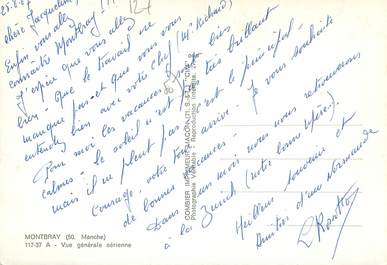 25.8.87
chère Jacqueline,
124
Enfin vous allez
connaître Montbray !
J'espère que vous allez
bien ! Que le travail ne
manque pas et que vous vous
entendez bien avec votre chef (Mr Richard)
Pour moi les vacances sont très
calmes - le soleil n'est pas très brillant
mais il ne pleut pas c'est le principal -
Courage, votre tour arrive - Je vous souhaite
de bonnes vacances -
Dans un mois nous nous retrouverons
à la Zurich (notre bon père).
Meilleur souvenir et
Amitiés d'une normande
COMBIER IMPRIMEUR MACON (71. S.-&-L.) "CIM"
Photographie Véritable - Reproduction interdite
MONTBRAY (50. Manche)
117-37 A - Vue générale aérienne